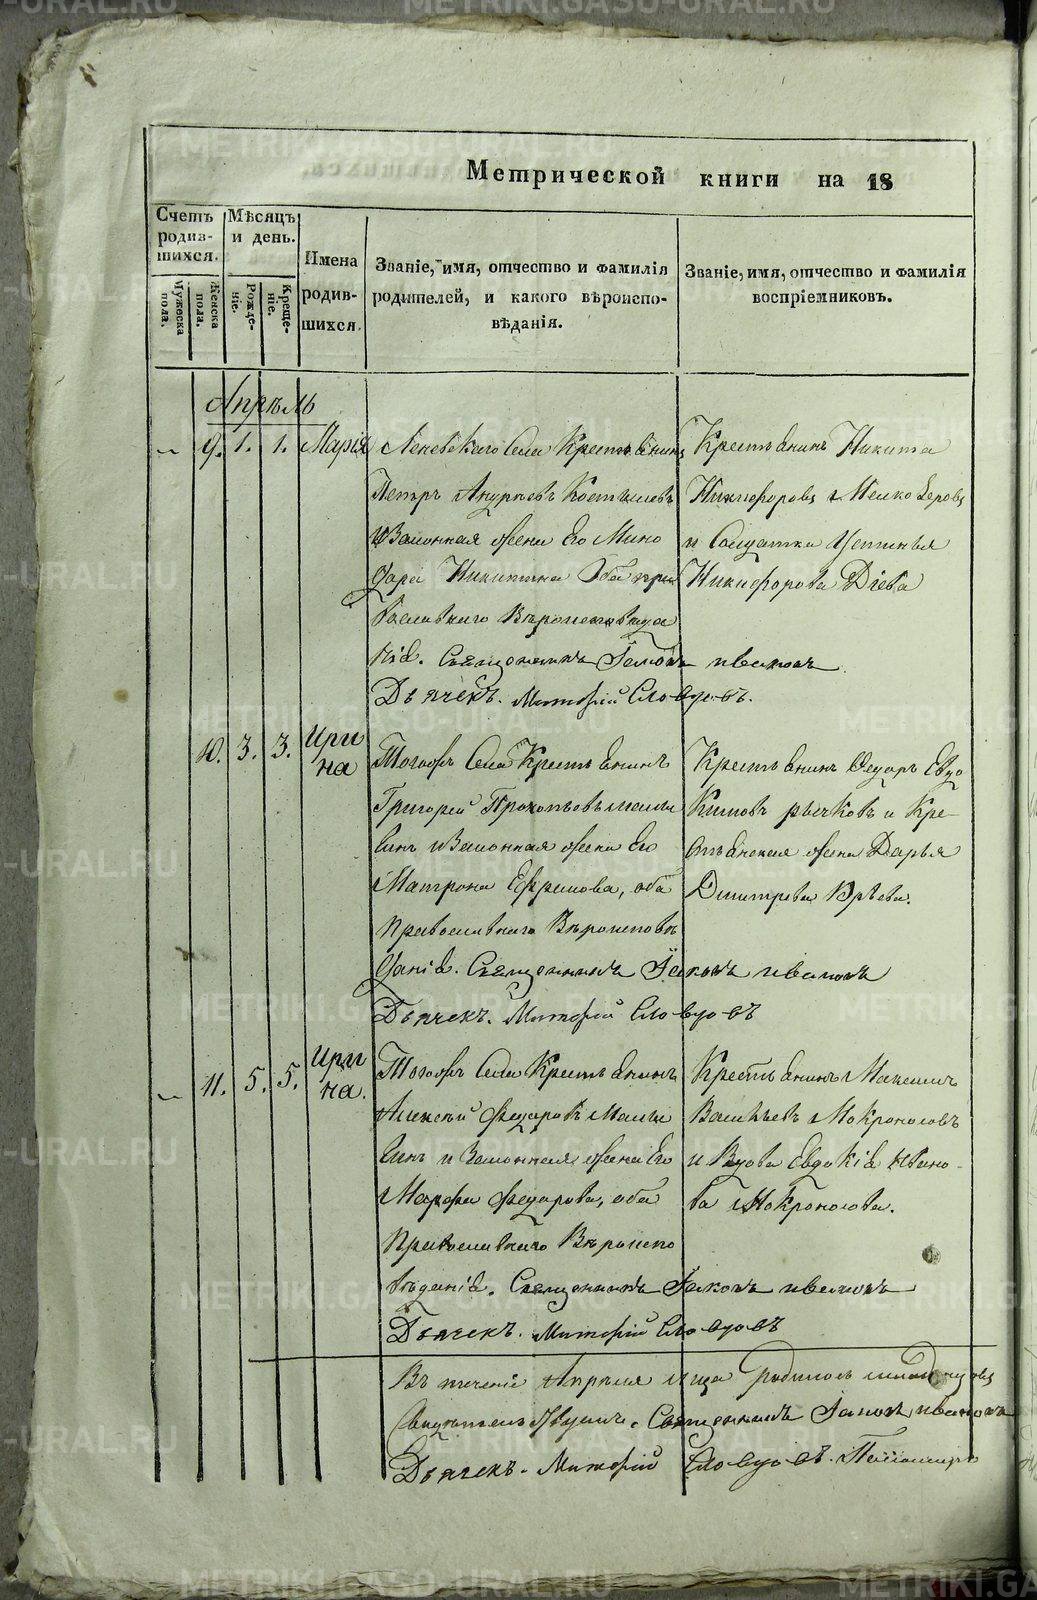 Метрической книги на 18
Счетъ родив-шихся.
Мужеска пола.
Женска пола.
Мѣсяцъ и день.
Рожде-ніе.
Креще-ніе.
Имена родив-шихся.
Званіе, имя, отчество и фамилія родителей, и какого вѣроиспо-вѣданія.
Званіе, имя, отчество и фамилія воспріемниковъ.
Апрѣль
9. 1. 1. Марія
Села Крестьянинъ
Петръ Андреевъ Костылевъ
и Законная жена Его Мино
дора Никитина Оба пра
вославнаго Вѣроисповѣда
нія. Священникъ Іаковъ Ивановъ
Дьячекъ. Словцовъ.
Крестьянинъ Никита
Никифоровъ Мелкозеровъ
и Солдатка Устинья
Никифорова Діева
10. 3. 3. Ири
на
Тогожъ Села Крестьянинъ
Григорей Прокопьевъ
и Законная жена Его
Матрона Ефимова, оба
Православнаго Вѣроисповѣ
данія. Священникъ Іаковъ Ивановъ
Дьячекъ. Словцовъ
Крестьянинъ Федоръ Евдо
кимовъ Рычковъ и Кре-
стьянская жена Дарья
Дмитрева
11. 5. 5. Ири
на.
Тогожъ Села Крестьянинъ
Алексѣй Федоровъ
и Законная жена Его
Марфа Федорова, оба
Православнаго Вѣроиспо
вѣданія. Священникъ Іаковъ Ивановъ
Дьячекъ. Словцовъ
Крестьянинъ Максимъ
Васильевъ Мокроносовъ
и Вдова Евдокія Ивано-
ва Мокроносова.
Въ теченіе Апрѣля м-ца Родилось
Священникъ Іаковъ Ивановъ
Дьячекъ. Словцовъ.
METRIKI.GASO-URAL.RU